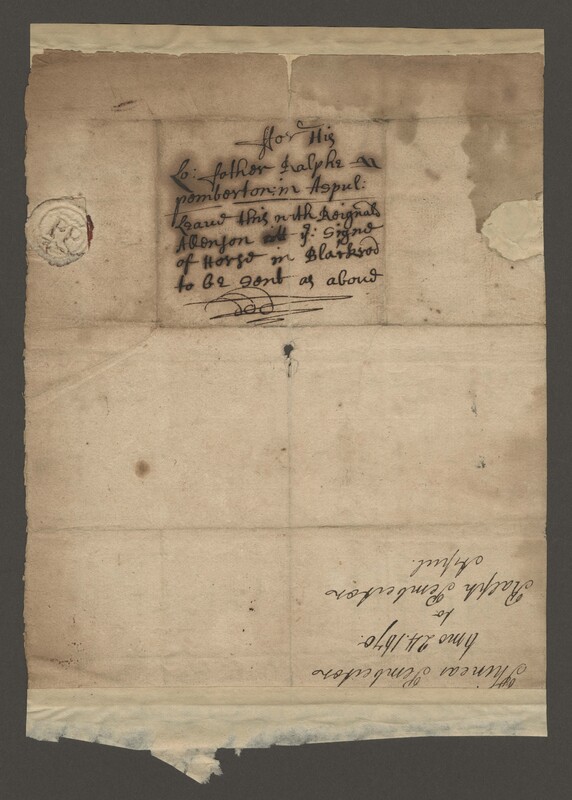 ffor His
Lo: father Ralphe
pemberton: in Aspul:
Leave this with Reignald
Abenson att ye: Signe
of Horse in Blackrod
to be Sent as aboue
ddd
Phineas Pemberton
6mo 24. 1670.
to
Ralph Pemberton
Aspul.